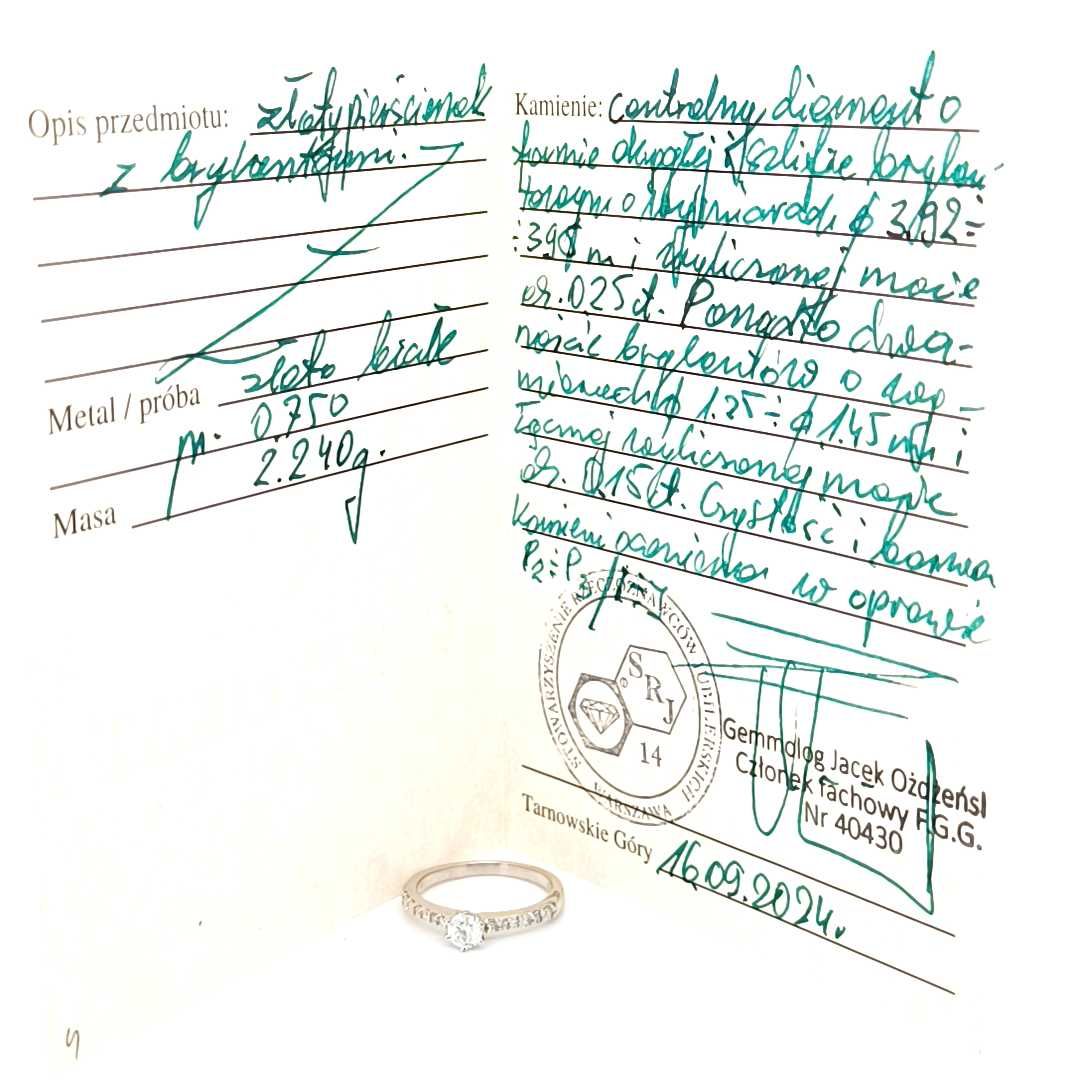 Opis przedmiotu: złoty pierścionek
z brylantami.
Metal / próba złoto białe
0.750
Masa m. 2.240g.
Kamienie: centralny diament o
formie okrągłej i szlifie brylan-
towym o wymiarach ϕ 3,92÷
m i wyliczonej masie
ok. 0.25 ct. Ponadto dwa-
naście brylantów o
ϕ 1.25÷ϕ 1.45 mm i
łącznej wyliczonej masie
ok. 0.15 ct. Czystość i barwa
kamieni oceniona w oprawie
P2÷P3/
STOWARZYSZENIE RZECZOZNAWCÓW JUBILERSKICH
WARSZAWA
SRJ
14
Gemmolog Jacek
Członek fachowy F.G.G.
Nr 40430
Tarnowskie Góry 16.09.2024.